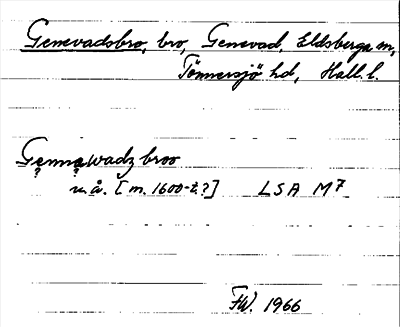 Genevadsbro, bro, Genevad, Eldsberga sn,
Tönnersjö hd, Hall. l.
Gennawadz broo
u. å. [m. 1600-t.?] LSA M7
FW. 1966